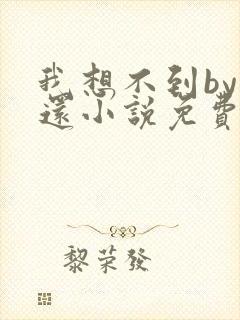 我想不到by
還小說免費
黎荣發